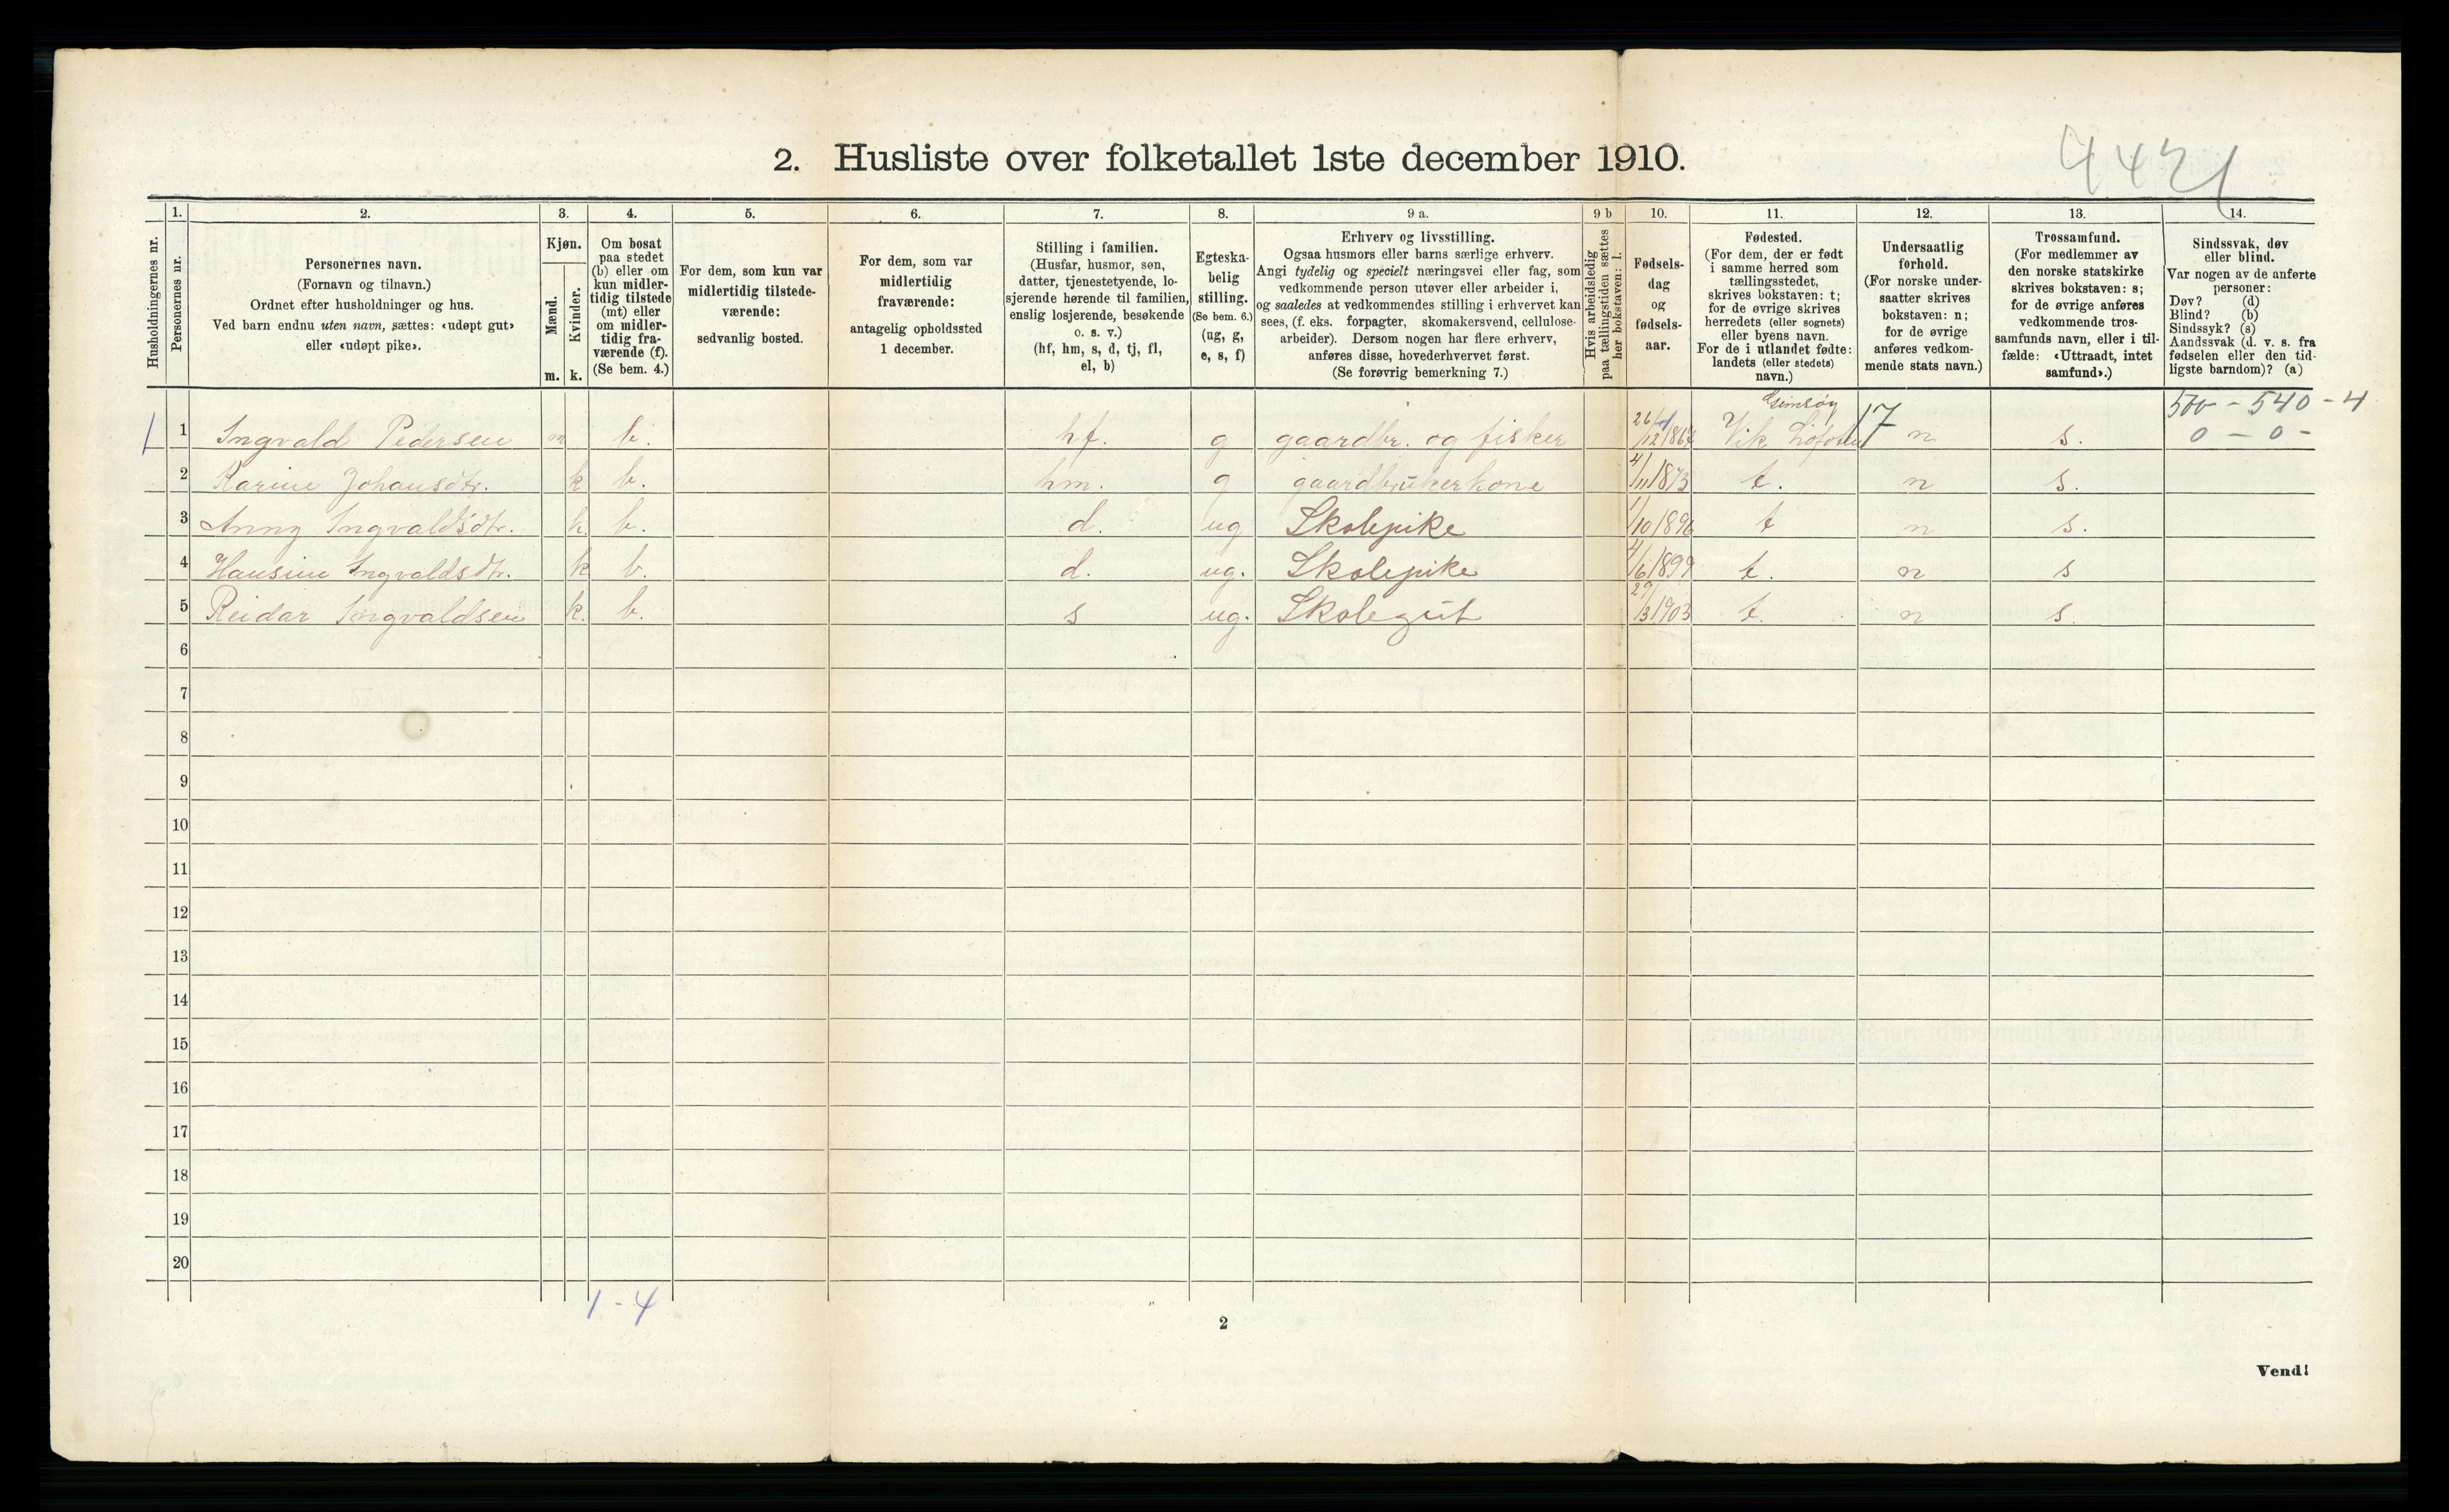 2. Husliste over folketallet 1ste december 1910.
4421
Husholdningernes nr.
1.
Personernes nr.
2.
Personernes navn.
(Fornavn og tilnavn.)
Ordnet efter husholdninger og hus.
Ved barn endnu uten navn, sættes: «udøpt gut»
eller «udøpt pike».
3.
Kjøn.
Mænd.
Kvinder.
m. k.
4.
Om bosat
paa stedet
(b) eller om
kun midler-
tidig tilstede
(mt) eller
om midler-
tidig fra-
værende (f).
(Se bem. 4.)
5.
For dem, som kun var
midlertidig tilstede-
værende:
sedvanlig bosted.
6.
For dem, som var
midlertidig
fraværende:
antagelig opholdssted
1 december.
7.
Stilling i familien.
(Husfar, husmor, søn,
datter, tjenestetyende, lo-
sjerende hørende til familien,
enslig losjerende, besøkende
o. s. v.)
(hf, hm, s, d, tj, fl,
el, b)
8.
Egteska-
belig
stilling.
(Se bem. 6.)
(ug, g,
e, s, f)
9 a.
Erhverv og livsstilling.
Ogsaa husmors eller barns særlige erhverv.
Angi tydelig og specielt næringsvei eller fag, som
vedkommende person utøver eller arbeider i,
og saaledes at vedkommendes stilling i erhvervet kan
sees, (f. eks. forpagter, skomakersvend, cellulose-
arbeider). Dersom nogen har flere erhverv,
anføres disse, hovederhvervet først.
(Se forøvrig bemerkning 7.)
9 b
Hvis arbeidsledig
paa tællingstiden sættes
her bokstaven: l.
10.
Fødsels-
dag
og
fødsels-
aar.
11.
Fødested.
(For dem, der er født
i samme herred som
tællingsstedet,
skrives bokstaven: t;
for de øvrige skrives
herredets (eller sognets)
eller byens navn.
For de i utlandet fødte:
landets (eller stedets)
navn.)
12.
Undersaatlig
forhold.
(For norske under-
saatter skrives
bokstaven: n;
for de øvrige
anføres vedkom-
mende stats navn.)
13.
Trossamfund.
(For medlemmer av
den norske statskirke
skrives bokstaven: s;
for de øvrige anføres
vedkommende tros-
samfunds navn, eller i til-
fælde: «Uttraadt, intet
samfund».)
14.
Sindssvak, døv
eller blind.
Var nogen av de anførte
personer:
Døv? (d)
Blind? (b)
Sindssyk? (s)
Aandssvak (d. v. s. fra
fødselen eller den tid-
ligste barndom)? (a)
Gimsøy 500 - 540 - 4
1 1 Ingvald Pedersen m b. hf. g gaardbr. og fisker 26/12 1867 Vik Lofoten 17 n s. 0 - 0 -
2 Karine Johansdtr. k b. hm. g gaardbrukerkone 4/11 1873 t. n s.
3 Anny Ingvaldsdtr. k b. d. ug Skolepike 1/10 1896 t n s.
4 Hansine Ingvaldsdtr. k b. d. ug. Skolepike 4/6 1899 t. n s
5 Reidar Ingvaldsen k. b. s ug. Skolegut 29/3 1903 t. n s.
6
7
8
9
10
11
12
13
14
15
16
17
18
19
20
1 - 4
2
Vend!